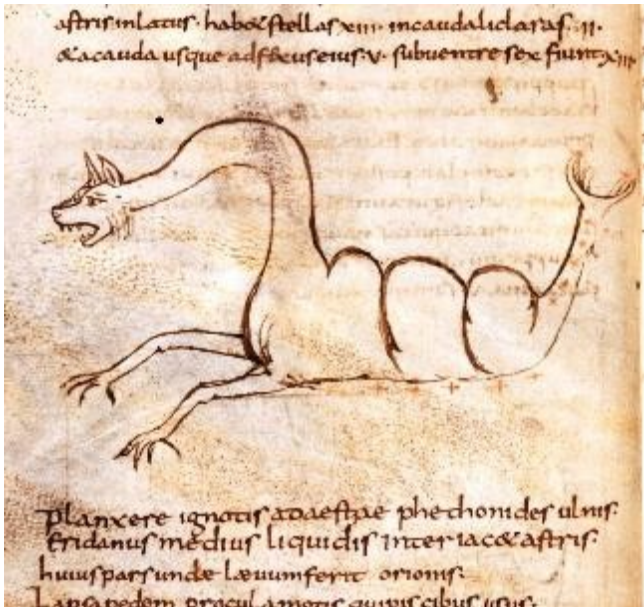 astris inlatus· hab&stellas xiii· incaudaliclaras· ii·
&acauda usque adflexus eius· v· subventre sex fiunt xiii
planxere ignotis adaestae phethonides ulnis·
Eridanus medius liquidis inter iac& astris·
huius pars undae laevum ferit orionis·
Lapsa pedem procul amotis piscibus usus·